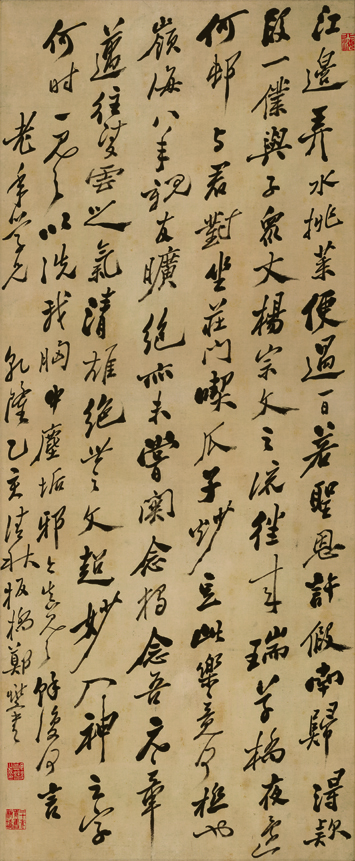 江邊弄水挑菜便過一日若聖恩許假南歸得款
段一僕與子衆丈楊宗文之流往來瑞草橋夜還
何邨与君對坐莊門喫瓜子炒豆此樂竟何極也
嶺海八年親友曠絕亦未嘗關念獨念吾元章
邁往凌雲之氣清雄絕世之文超妙入神之字
何时一見之以洗我胸中塵垢邪今真見之餘復何言
老年學兄 乾隆乙亥清秋板橋鄭燮書